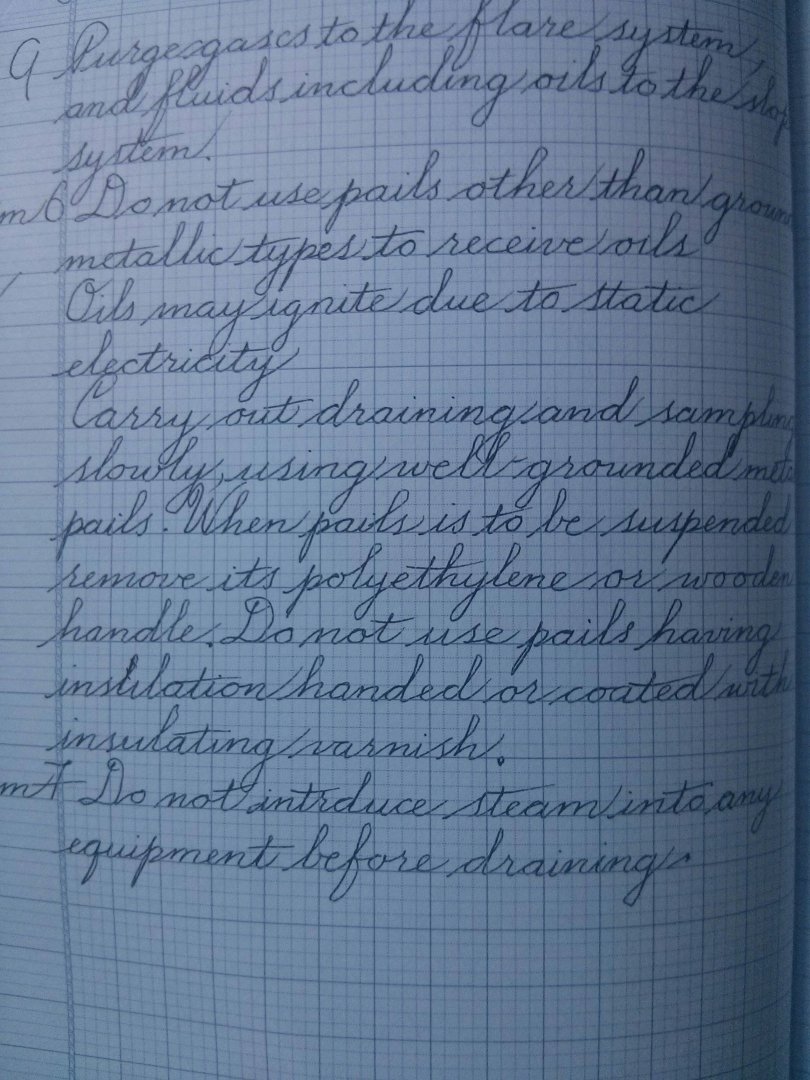 9 Purge gases to the flare system,
and fluids including oils to the slop
system.
m6 Do not use pails other than groun
metallic types to receive oils
Oils may ignite due to static
electricity
Carry out draining and sampling
slowly, using well-grounded meta
pails. When pails is to be suspended
remove its polyethylene or wooden
handle. Do not use pails having
insulation handed or coated with
insulating varnish.
m7 Do not intrduce steam into any
equipment before draining.